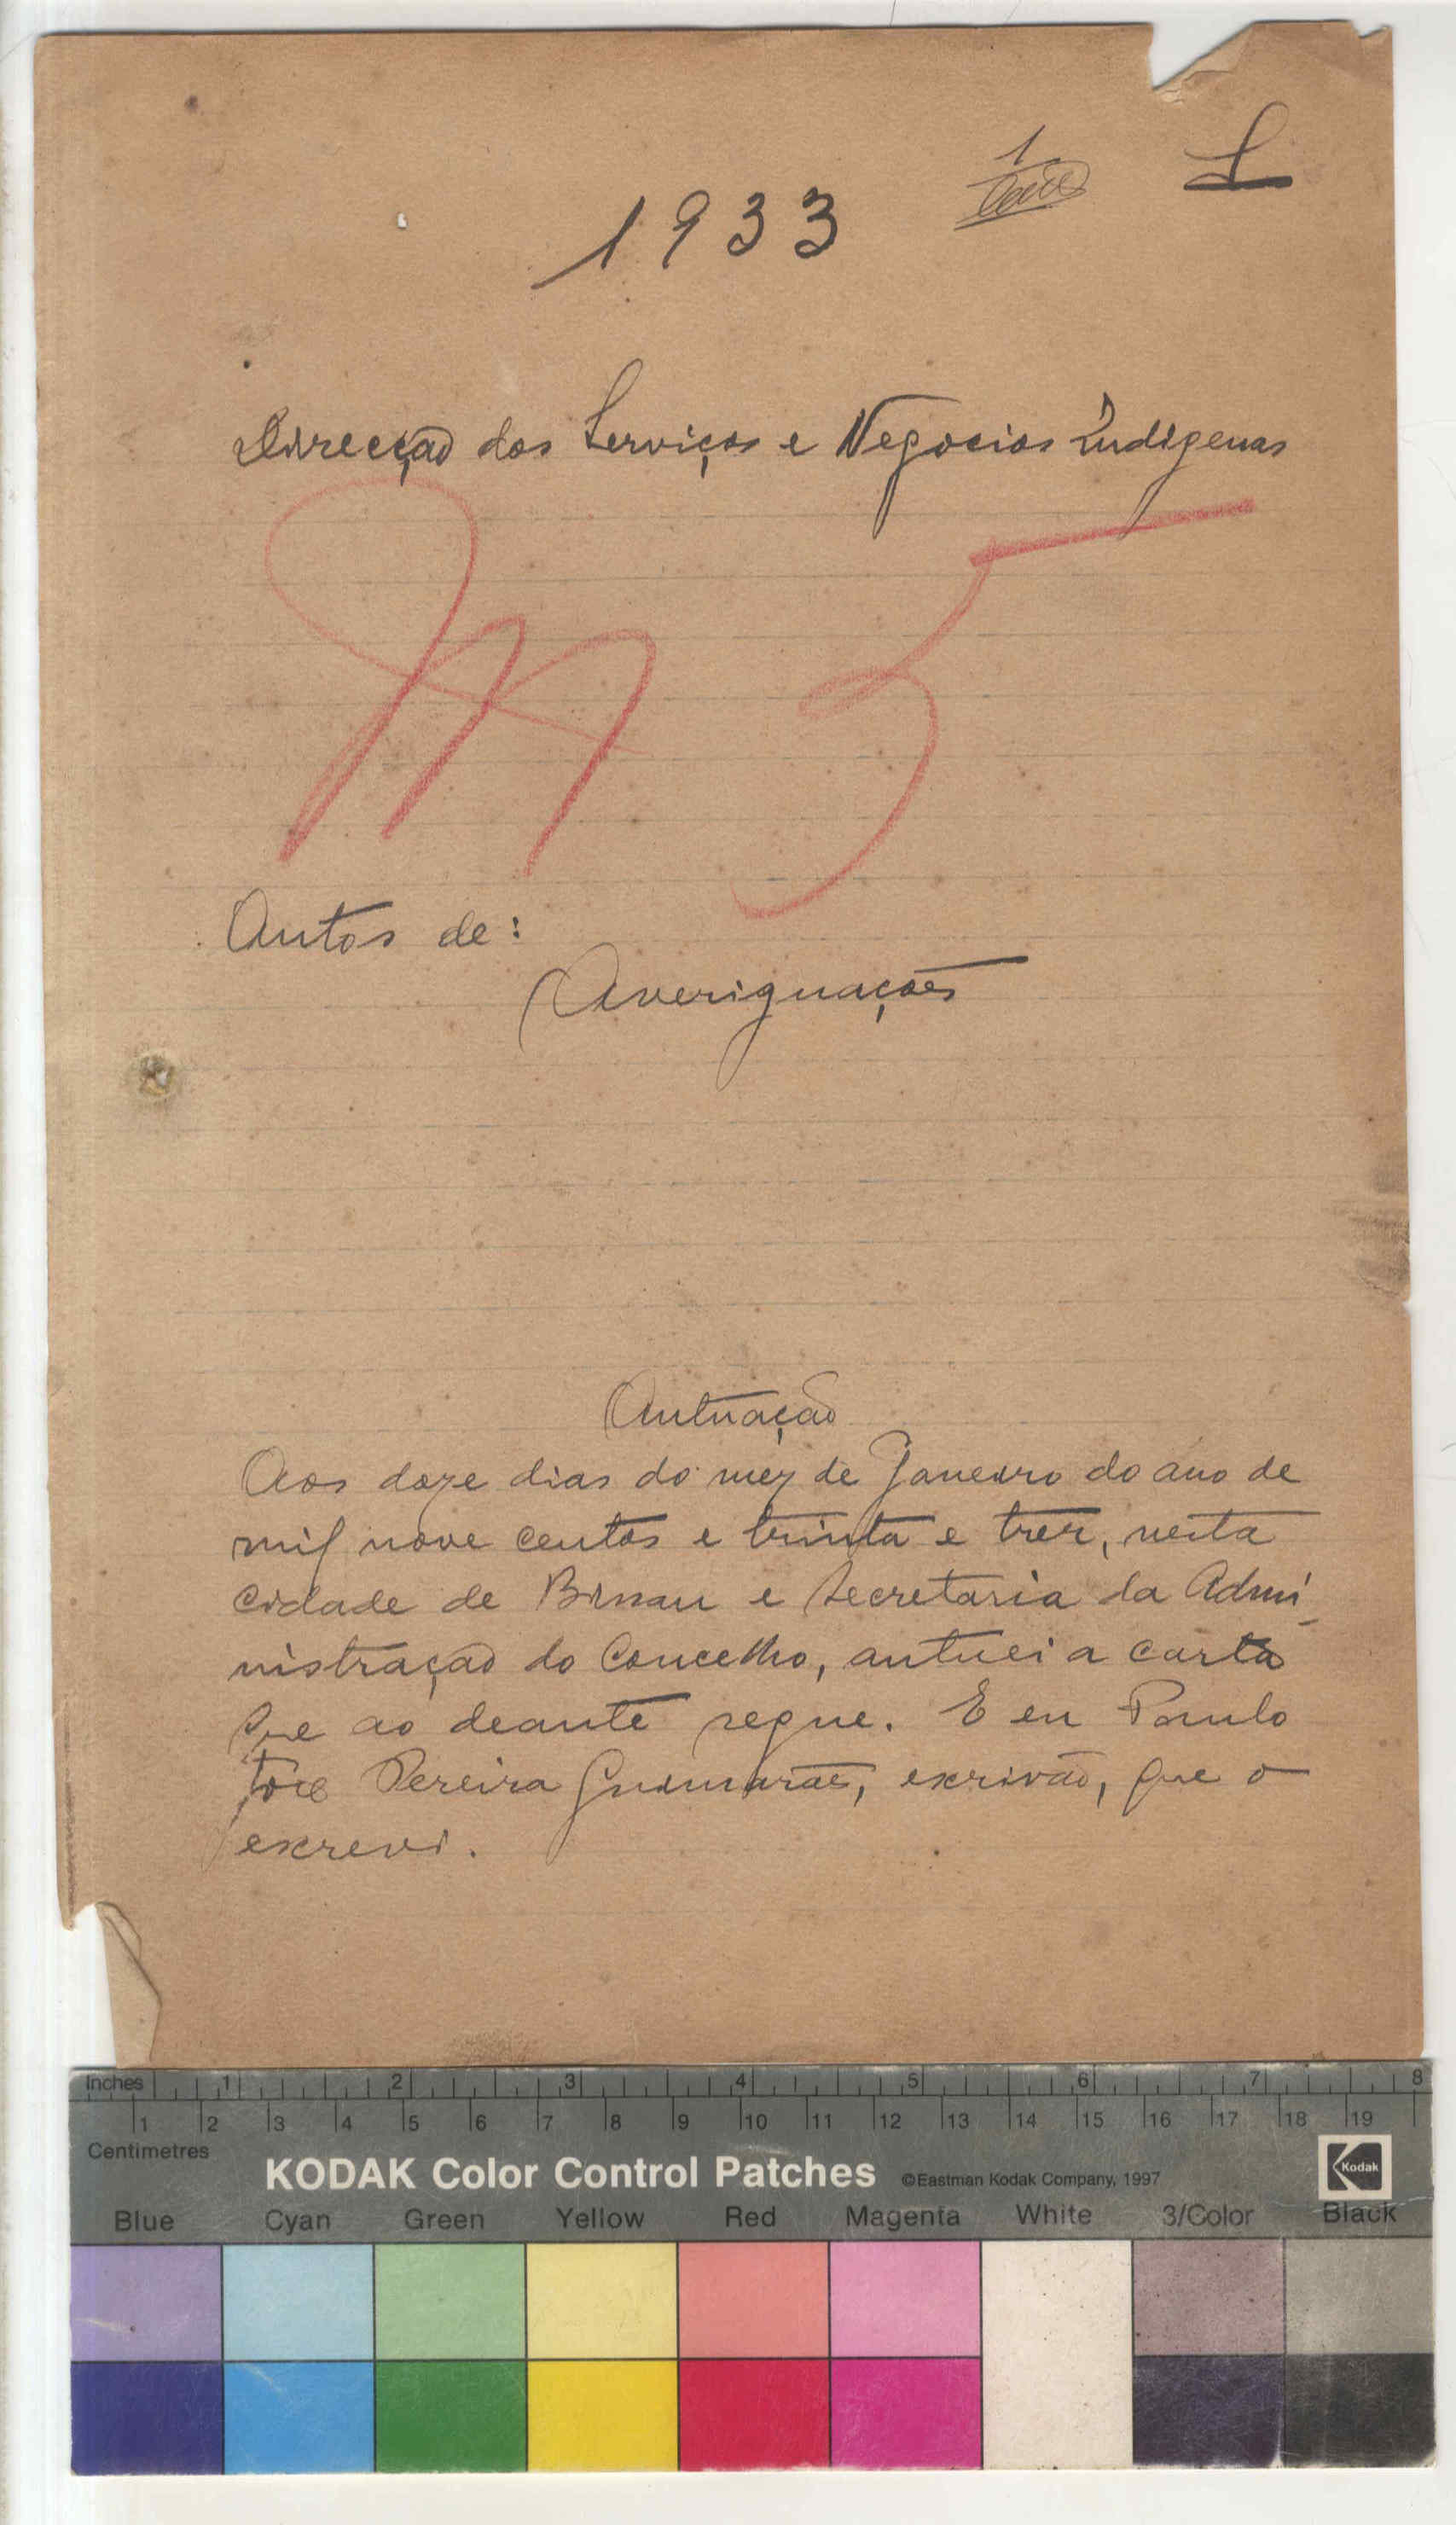 1
L
1933
Direcção dos Serviços e Negocios Indigenas
M 5
Autos de:
Averiguações
Autuação
Aos doze dias do mez de Janeiro do ano de
mil nove centos e trinta e tres, nesta
cidade de Bissau e secretaria da Admi-
nistração do Concelho, autuei a carta
que ao deante segue. E eu Paulo
José Pereira Guimarães, escrivão, que o
escrevi.
Inches 1 2 3 4 5 6 7 8
1 2 3 4 5 6 7 8 9 10 11 12 13 14 15 16 17 18 19
Centimetres
KODAK Color Control Patches ©Eastman Kodak Company, 1997 Kodak
Blue Cyan Green Yellow Red Magenta White 3/Color Black